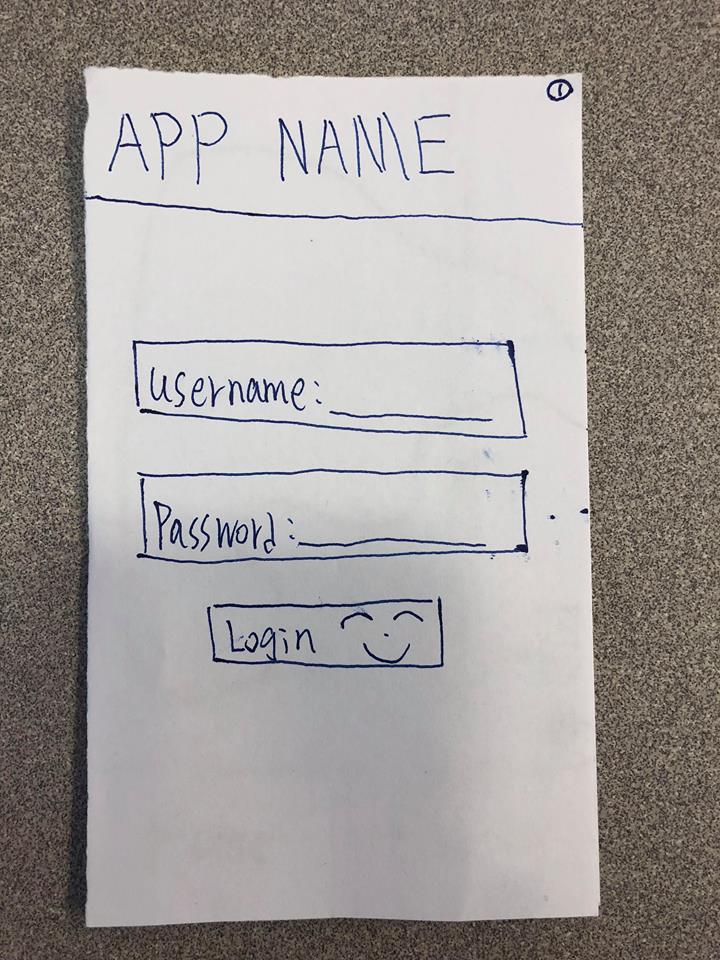 ①
APP NAME
Username: ________
Password: ________
Login